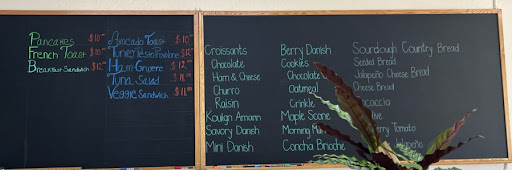 Pancakes $10
French Toast $10
Breakfast Sandwich $12
Avocado Toast $10
Turkey Pesto Provolone $12
Ham Gruyere $12
Tuna Salad $11
Veggie Sandwich $11
Croissants
Chocolate
Ham & Cheese
Churro
Raisin
Kouign Amann
Savory Danish
Mini Danish
Berry Danish
Cookies
Chocolate
Oatmeal
Crinkle
Maple Scone
Morning
Concha Brioche
Sourdough Country Bread
Seeded Bread
Jalapeño Cheese Bread
Cheese Bread
Tomato